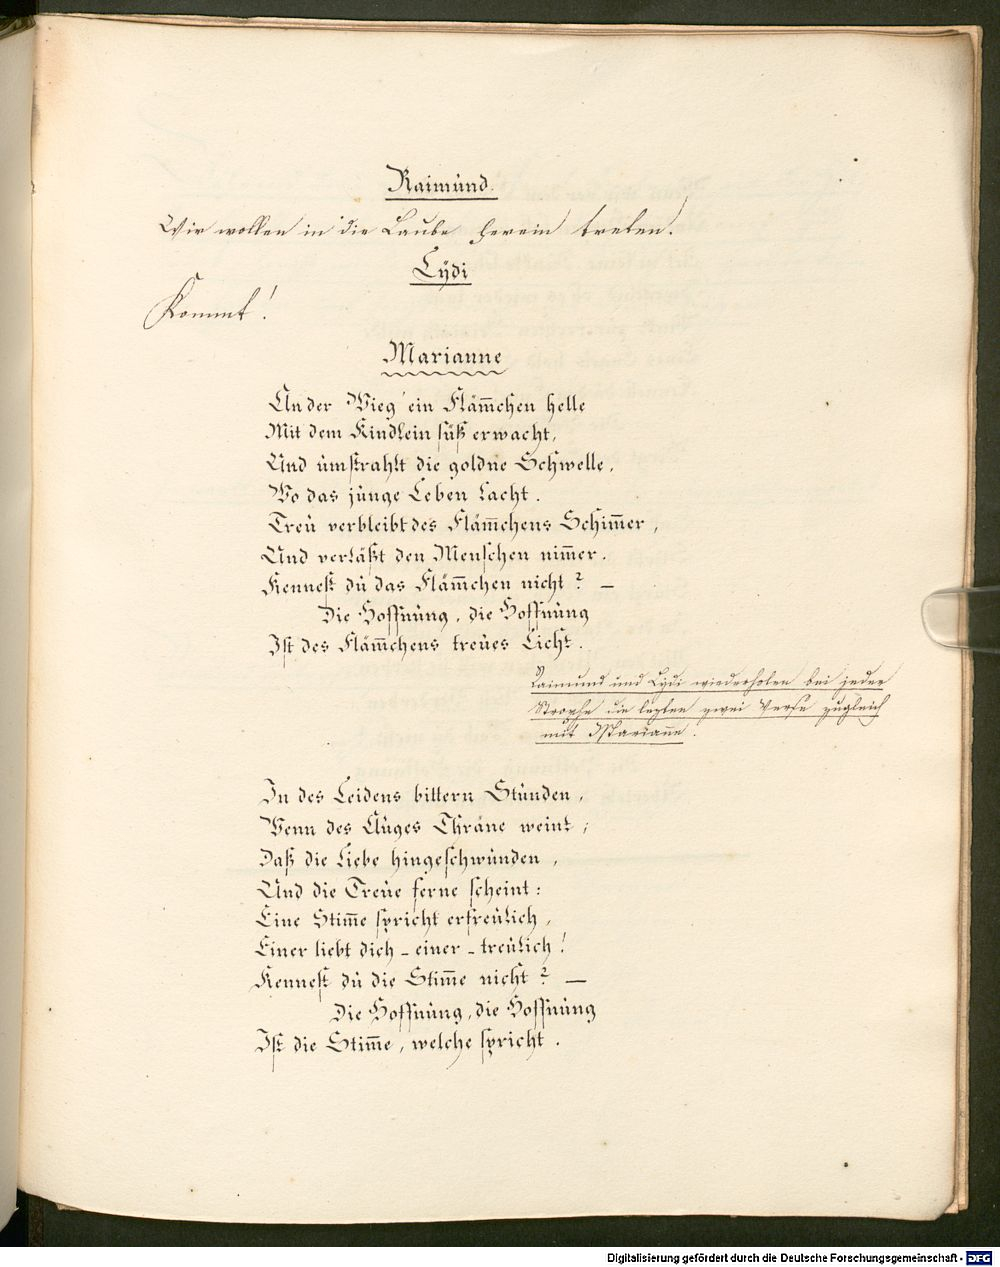 Raimund.
Wir wollen in die Laube herein treten.
Lÿdi
Kommt!
Marianne
An der Wieg' ein Flam̄chen helle
Mit dem Kindlein süß erwacht,
Und umstrahlt die goldne Schwelle,
Wo das junge Leben lacht.
Treu verbleibt des Fläm̄chens Schim̄er,
Und verläßt den Menschen nim̄er.
Kennest du das Fläm̄chen nicht? —
Die Hoffnung, die Hoffnung
Ist des Fläm̄chens treues Licht.
Raimund und Lydi wiederholen bei jeder
Strophe die lezten zwei Verse zugleich
mit Marian̄e!
In des Leidens bittern Stunden,
Wenn des Auges Thräne weint;
Daß die Liebe hingeschwunden,
Und die Treue ferne scheint:
Eine Stim̄e spricht erfreulich,
Einer liebt dich – einer – treulich!
Kennest du die Stim̄e nicht? —
Die Hoffnung, die Hoffnung
Ist die Stim̄e, welche spricht.
Digitalisierung gefördert durch die Deutsche Forschungsgemeinschaft - DFG